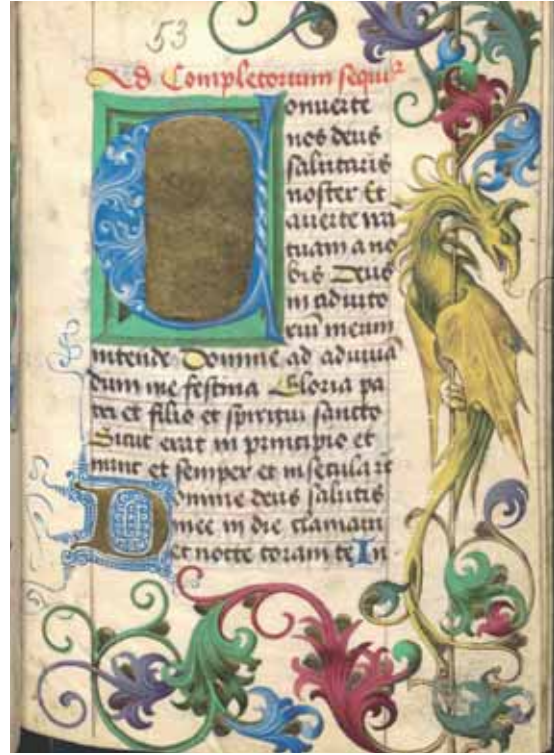 53
Ad Completorium sequit᷑
Conuerte
nos deus
salutaris
noster Et
auerte ira
tuam a no
bis Deus
in adiuto
riū meum
intende Domine ad adiuuā
dum me festina Gloria pa
tri et filio et spiritui sancto
Sicut erat in principio et
nunc et semper et in secula
Domine deus salutis
mee in die clamaui
et nocte coram te In